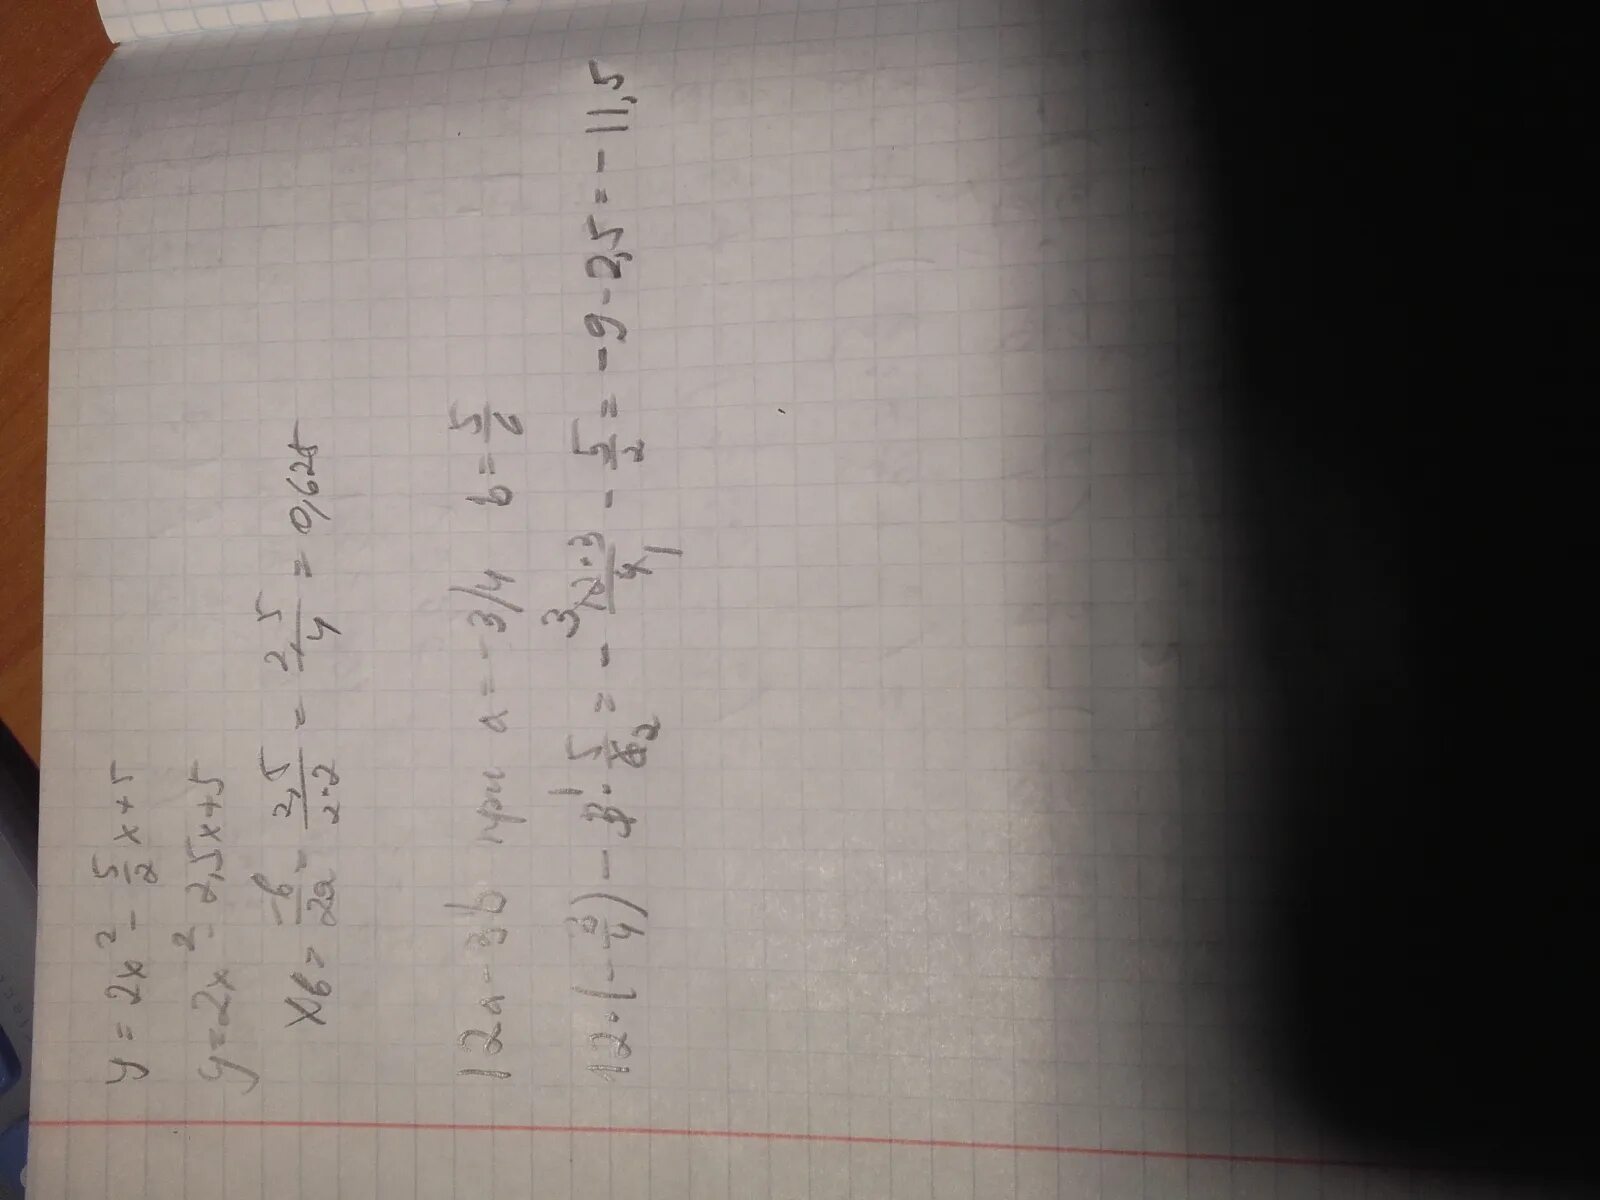 y = 2x² - 5/2 x + 5
y = 2x² - 2,5x + 5
xв = -b/2a = 2,5/2·2 = 2,5/4 = 0,625
12a - 3b при a = -3/4 b = 5/6
12·(-3/4) - 3 1 · 5/6 2 = - 3 12·3/4 1 - 5/2 = -9 - 2,5 = -11,5